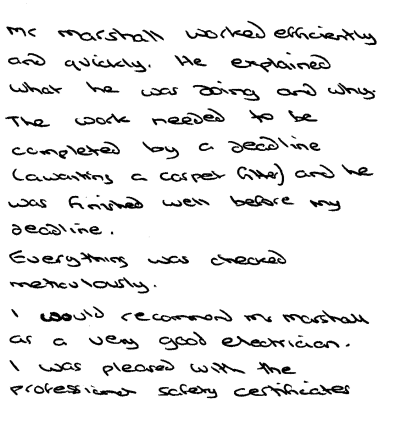 Mr Marshall worked efficiently
and quickly. He explained
what he was doing and why.
The work needed to be
completed by a deadline
(awaiting a carpet fitter) and he
was finished well before my
deadline.
Everything was checked
meticulously.
I would recommend Mr Marshall
as a very good electrician.
I was pleased with the
professional safety certificates